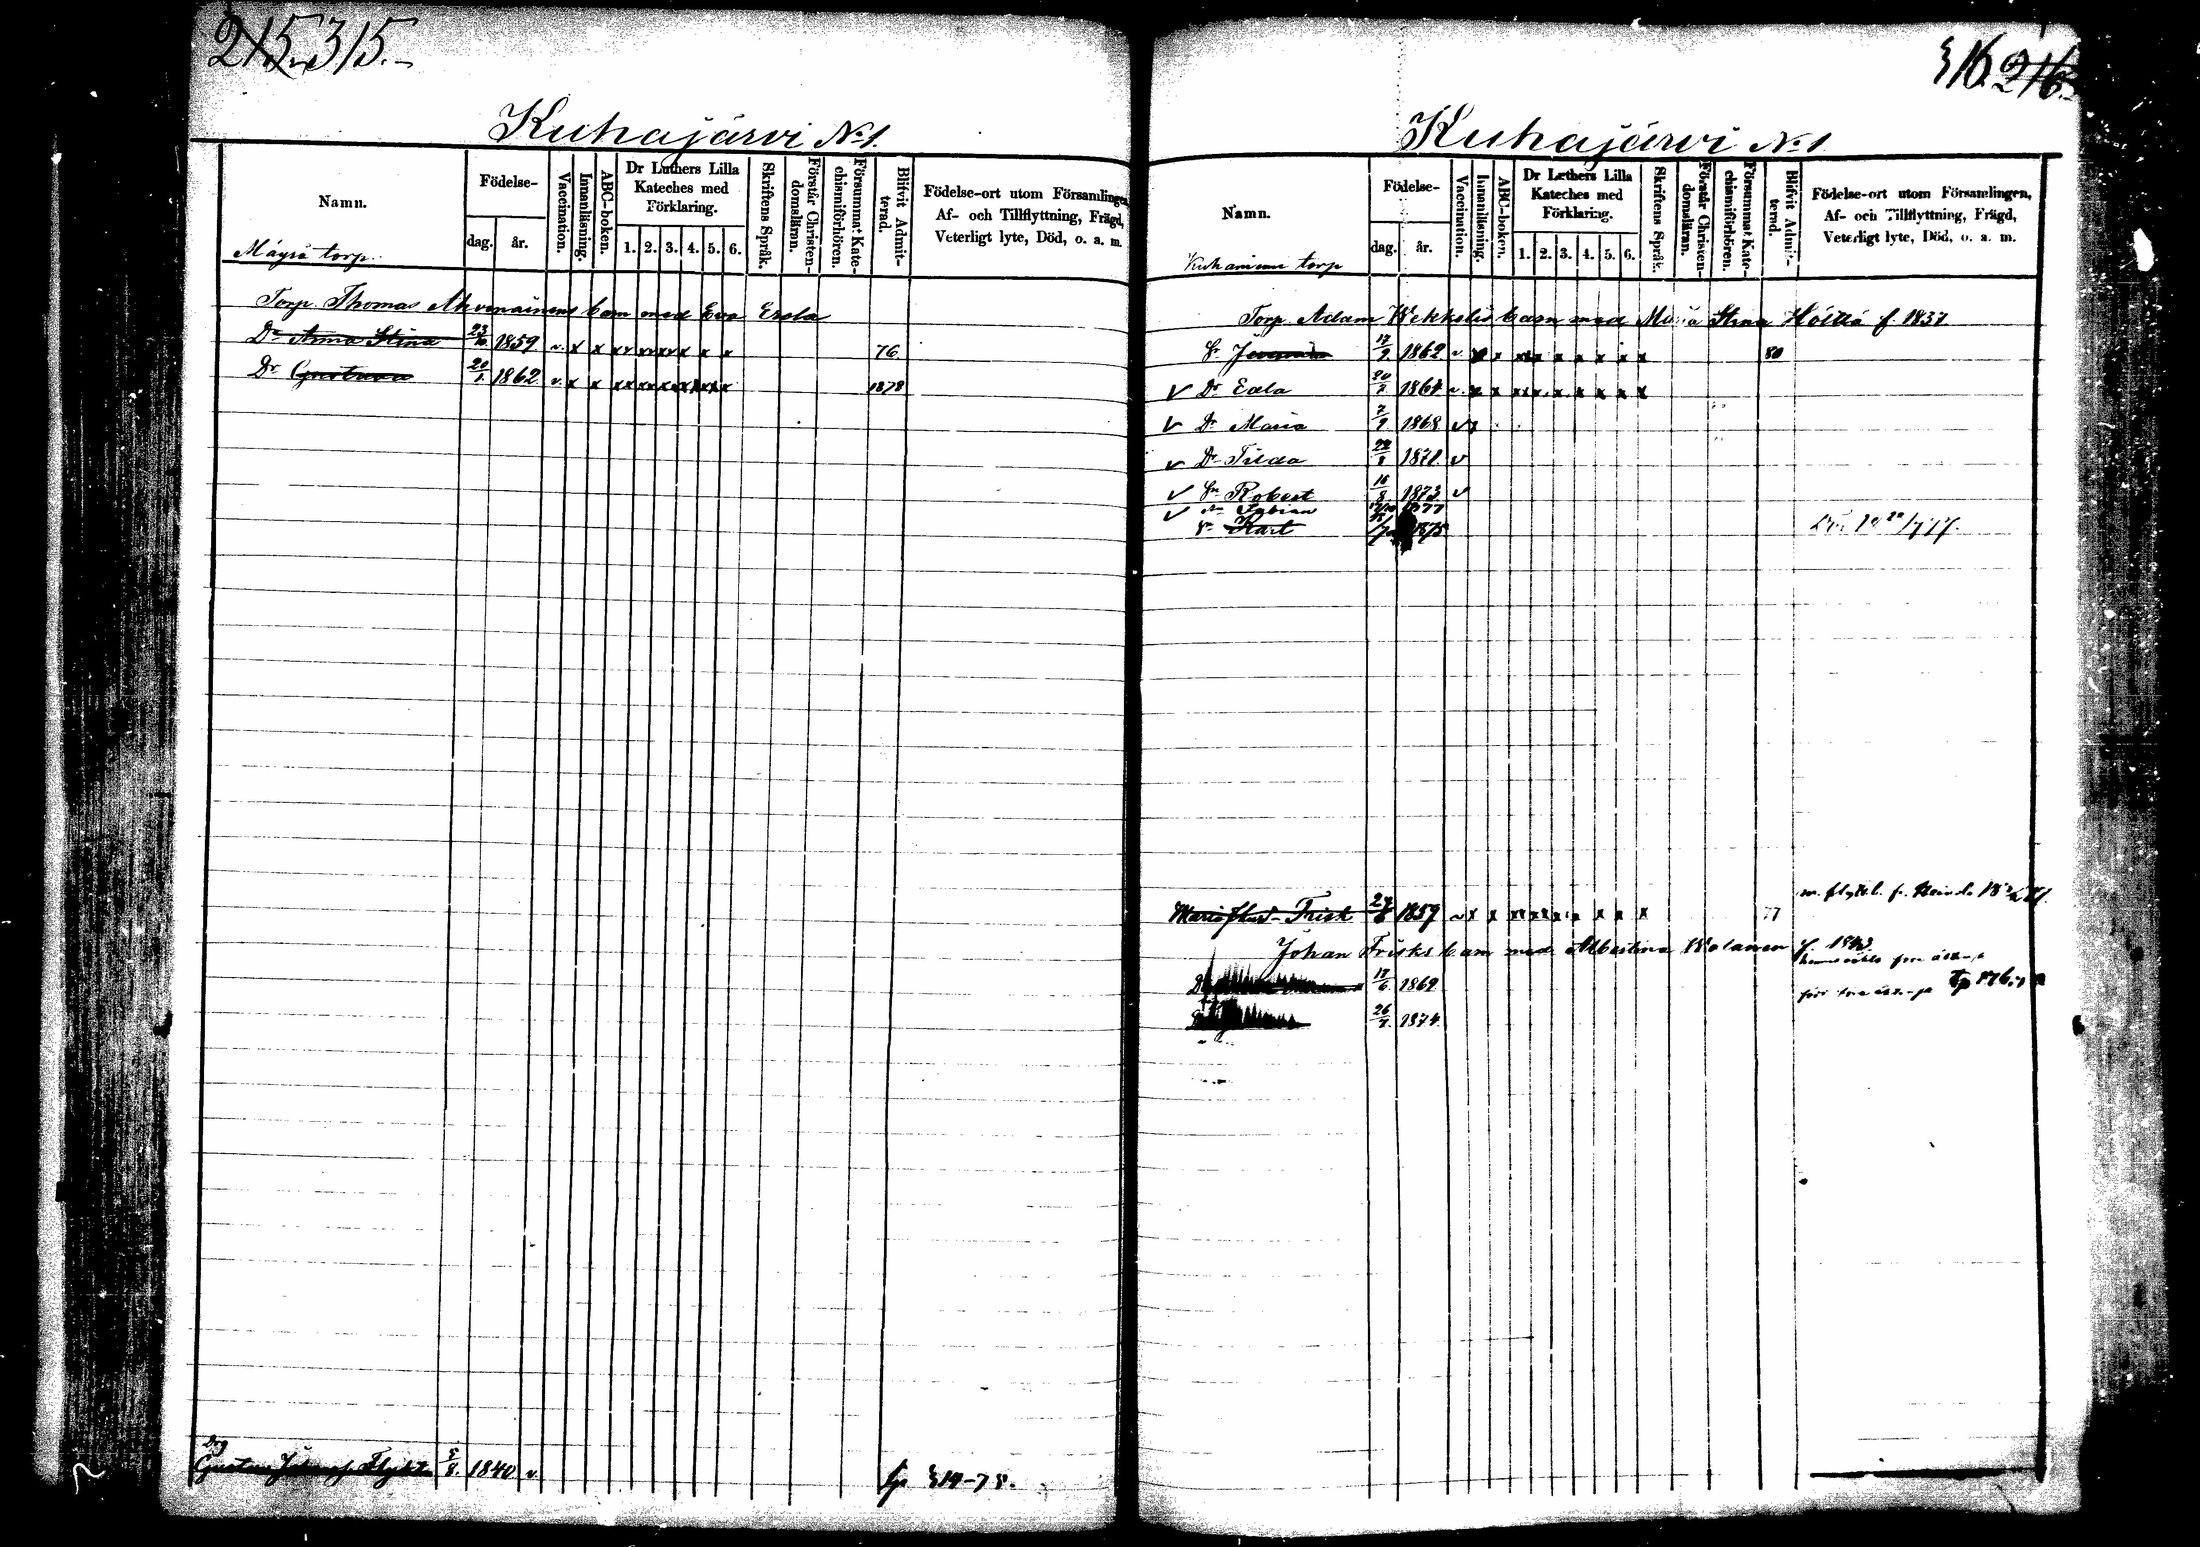 215. 315.
Kuhajärvi No 1.
Namn.
Födelse-
dag.
år.
Vaccination.
Innanläsning.
ABC-boken.
Dr Luthers Lilla
Kateches med
Förklaring.
1. 2. 3. 4. 5. 6.
Skriftens Språk.
Förstår Christen-
domsläran.
Försummat Kate-
chismiförhören.
Blifvit Admit-
terad.
Födelse-ort utom Församlingen,
Af- och Tillflyttning, Frägd,
Veterligt lyte, Död, o. a. m.
torp.
Torp. Thomas Ahvenainens barn med Eva Ersta
Dr Anna Stina 23/10 1859 v. x x xx xx xx x x x 76
Dr Gustava 20/1 1862 v. x x xx xx xx xx xx x 1878
Gustav Flykt 5/8. 1840 v. 314-78.
316. 216.
Kuhajärvi No 1
Namn.
Födelse-
dag.
år.
Vaccination.
Innanläsning.
ABC-boken.
Dr Luthers Lilla
Kateches med
Förklaring.
1. 2. 3. 4. 5. 6.
Skriftens Språk.
Förstår Christen-
domsläran.
Försummat Kate-
chismiförhören.
Blifvit Admit-
terad.
Födelse-ort utom Församlingen,
Af- och Tillflyttning, Frägd,
Veterligt lyte, Död, o. a. m.
Kuhaniemi torp
Torp. Adam Wekkelis barn med Maria Stina Höltta f. 1837
1862 v x x xx x x x x x 80
Dr Edla 1864 v. x x xx x x x x x
Dr Maria 1868 v x
Dr Tilda 1871. v
Sn Robert 16/8 1873 v
Sn Fabian 1877
Sn Karl 1875
Frisk 27/8 1859 v x x xx x x x x x x 77
Johan Frisks barn med Albertina Wolanen f.
17/6 1869
26/7 1874